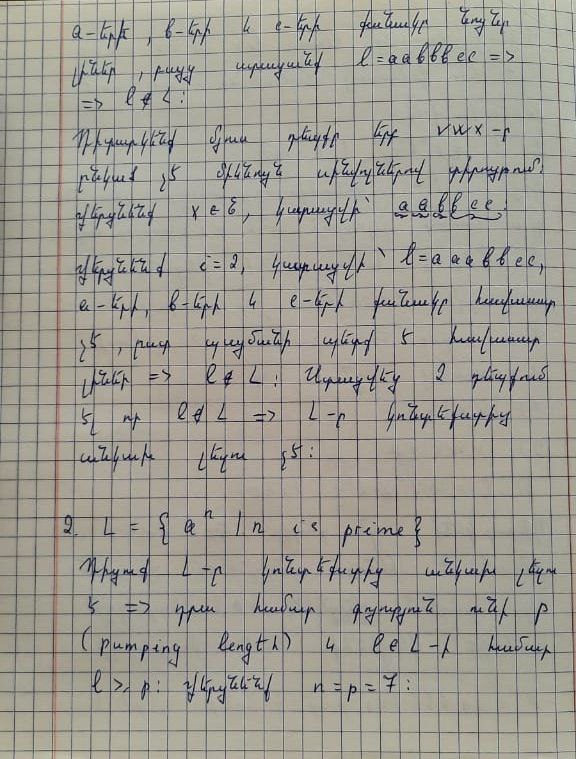 a-երի, b-երի և c-երի քանակը նույնը
լիներ, բայց ստացանք l=aabbbcc =>
=> l∉L:
Դիտարկենք մյուս դեպքը երբ vwx-ը
բնկած չէ միևնույն սիմվոլներով տիրույթում:
Վերցնենք x∈Ɛ, կստացվի՝ aabbcc:
Վերցնենք i=2, կստացվի՝ l=aaabbcc,
a-երի, b-երի և c-երի քանակը հավասար
չէ, ըստ պայմանի պետք է հավասար
լիներ => l∉L: Ստացվեց 2 դեպքում
էլ որ l∉L => L-ը կոնտեքստից
անկախ լեզու չէ:
2. L = { aⁿ | n is prime }
Դիցուք L-ը կոնտեքստից անկախ լեզու
է => դրա համար գոյություն ունի p
(pumping length) և l∈L-ի համար
l ≥ p: Վերցնենք n=p=7: